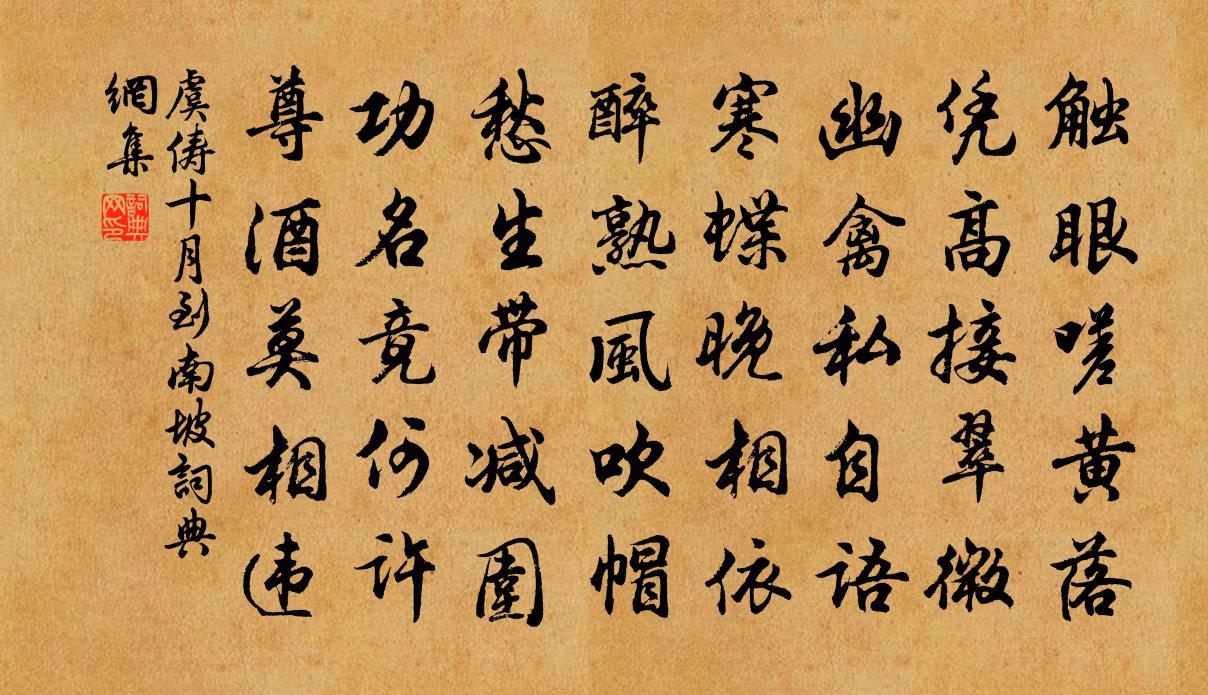 触眼嗟黄落
凭高接翠微
幽禽私自语
寒蝶晚相依
醉熟風吹帽
愁生带减圍
功名竟何许
尊酒莫相违
虞儔十月到南坡詞典
網集
詞典網印